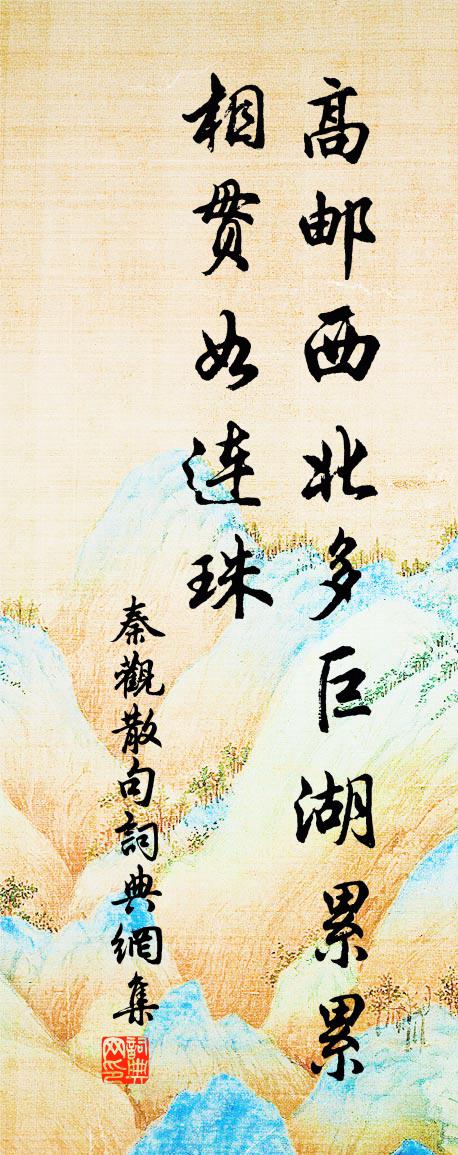 高邮西北多巨湖累累
相贯如连珠
秦觀散句詞典網集
詞典网印